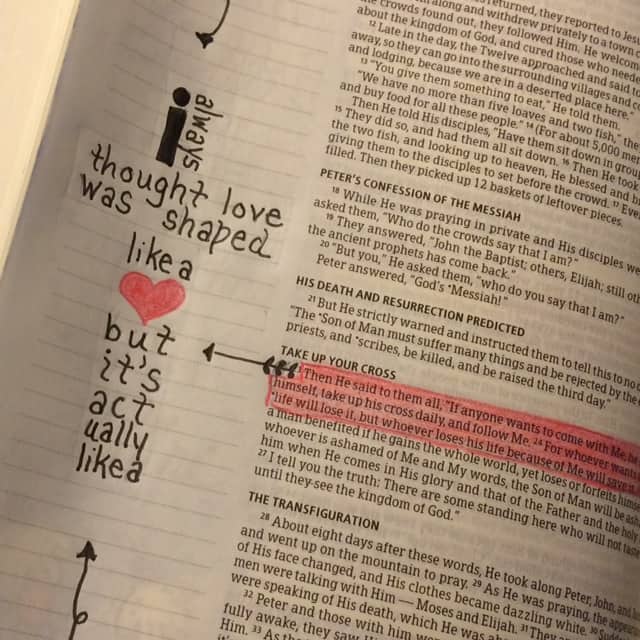 i always
thought love
was shaped
like a
but
it's
act
ually
like a
returned, they reported to Jesus
along and withdrew privately to a town
the crowds found out, they followed Him. He welcomed
about the kingdom of God, and cured those who needed
12 Late in the day, the Twelve approached and said to
away, so they can go into the surrounding villages and
and lodging, because we are in a deserted place here."
13 "You give them something to eat," He told them.
"We have no more than five loaves and two fish," they
and buy food for all these people." 14 (For about 5,000 men
Then He told His disciples, "Have them sit down in groups
15 They did so, and had them all sit down. 16 Then He took
the two fish, and looking up to heaven, He blessed and
giving them to the disciples to set before the crowd. 17 Every
filled. Then they picked up 12 baskets of leftover pieces.
PETER'S CONFESSION OF THE MESSIAH
18 While He was praying in private and His disciples were
asked them, "Who do the crowds say that I am?"
19 They answered, "John the Baptist; others, Elijah; still others
the ancient prophets has come back."
20 "But you," He asked them, "who do you say that I am?"
Peter answered, "God's Messiah!"
HIS DEATH AND RESURRECTION PREDICTED
21 But He strictly warned and instructed them to tell this to no
"The Son of Man must suffer many things and be rejected by the
priests, and scribes, be killed, and be raised the third day."
TAKE UP YOUR CROSS
Then He said to them all, "If anyone wants to come with Me, he
himself, take up his cross daily, and follow Me. 24 For whoever wants
life will lose it, but whoever loses his life because of Me will save it
a man benefited if he gains the whole world, yet loses or forfeits himself
whoever is ashamed of Me and My words, the Son of Man will be
him when He comes in His glory and that of the Father and the holy
27 I tell you the truth: There are some standing here who will not taste
until they see the kingdom of God."
THE TRANSFIGURATION
28 About eight days after these words, He took along Peter, John, and
and went up on the mountain to pray. 29 As He was praying, the appearance
of His face changed, and His clothes became dazzling white. 30
men were talking with Him — Moses and Elijah. 31
were speaking of His death, which He was
32 Peter and those with him were
fully awake, they saw
Him. 33 As the